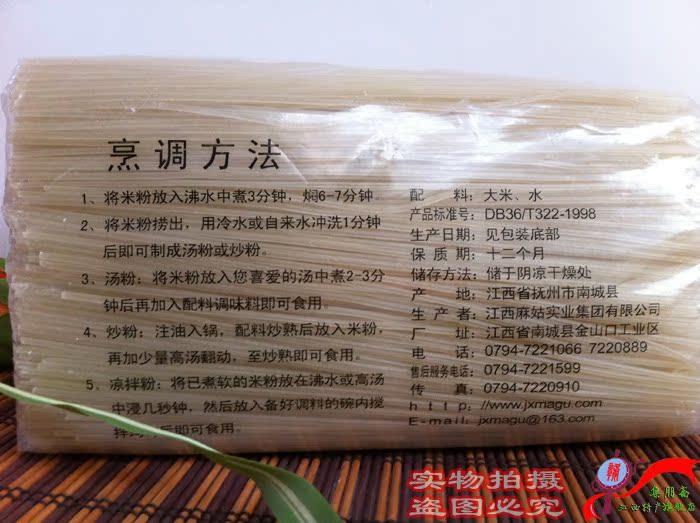 烹调方法
1、将米粉放入沸水中煮3分钟，焖6-7分钟。
2、将米粉捞出，用冷水或自来水冲洗1分钟
后即可制成汤粉或炒粉。
3、汤粉：将米粉放入您喜爱的汤中煮2-3分
钟后再加入配料调味料即可食用。
4、炒粉：注油入锅，配料炒熟后放入米粉，
再加少量高汤翻动，至炒熟即可食用。
5、凉拌粉：将已煮软的米粉放在沸水或高汤
中浸几秒钟，然后放入备好调料的碗内搅
拌均匀后即可食用。
配 料：大米、水
产品标准号：DB36/T322-1998
生产日期：见包装底部
保质期：十二个月
储存方法：储于阴凉干燥处
产 地：江西省抚州市南城县
生产者：江西麻姑实业集团有限公司
厂 址：江西省南城县金山口工业区
电 话：0794-7221066 7220889
售后服务电话：0794-7221599
传 真：0794-7220910
http://www.jxmagu.com
E-mail：jxmagu@163.com
实物拍摄
盗图必究